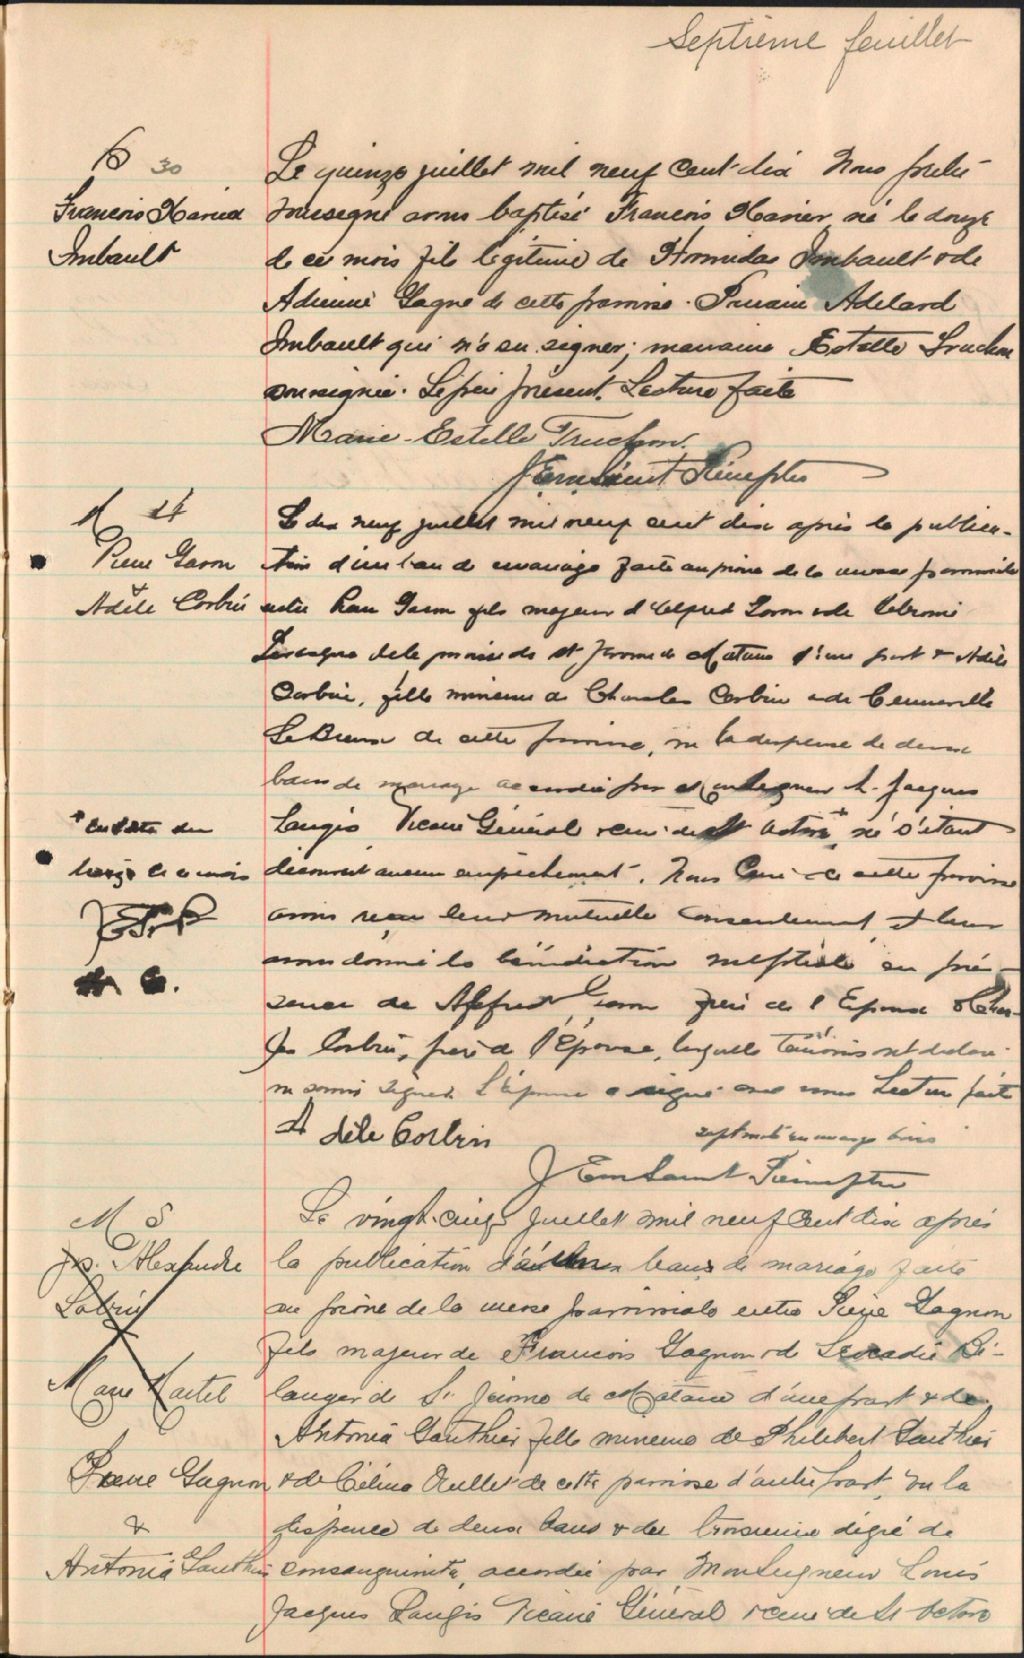 Septième feuillet
B 30
François Xavier
Imbault
Le quinze juillet mil neuf cent dix Nous prêtre
soussigné avons baptisé François Xavier né le douze
de ce mois fils légitime de Hormidas Imbault & de
Adienne Gagné de cette paroisse. Parrain Adelard
Imbault qui n'a su signer; marraine Estelle Truchon
soussignée. Le père présent. Lecture faite
Marie-Estelle Truchon.
J Em Saint
M 4
Pierre Garon
&
Adèle Corbin
Le dix neuf juillet mil neuf cent dix après la publica-
tion d'un ban de mariage faite au prône de la messe paroissiale
entre Garon fils majeur d'Alfred Garon & de
de la paroisse de St Jérome de Matane d'une part & Adèle
Corbin, fille mineure de Charles Corbin & de
LeBreux de cette paroisse, vu la dispense de deux
bans de mariage accordée par Monseigneur L. Jacques
Langis Vicaire Général & curé de St Octave + ne s'étant
découvert aucun empêchement, Nous Curé de cette paroisse
avons reçu leur mutuelle consentement et leur
avons donné la bénédiction nuptiale en pré-
sence de Alfred Garon frère de l'Epoux & Char-
les Corbin, père de l'Épouse, lesquels témoins ont déclaré
ne savoir signer. L'épouse a signé avec nous Lecture faite
+ en date du
treize de ce mois
Adèle Corbin
sept mots en marge bons
J Em Saint
M 5
Js. Alexandre
Marie Martel
Pierre Gagnon
&
Antonia Gauthier
Le vingt-cinq juillet mil neuf cent dix après
la publication bans de mariage faite
au prône de la messe paroissiale entre Pierre Gagnon
fils majeur de François Gagnon & d Leocadie Bé-
langer de St. Jérome de Matane d'une part & de
Antonia Gauthier fille mineure de Philibert Gauthier
& de Célina Ouellet de cette paroisse d'autre part, vu la
dispence de deux bans & du troisième dégré de
consanguinité, accordée par Monseigneur Louis
Jacques Langis Vicaire Général & curé de St Octave